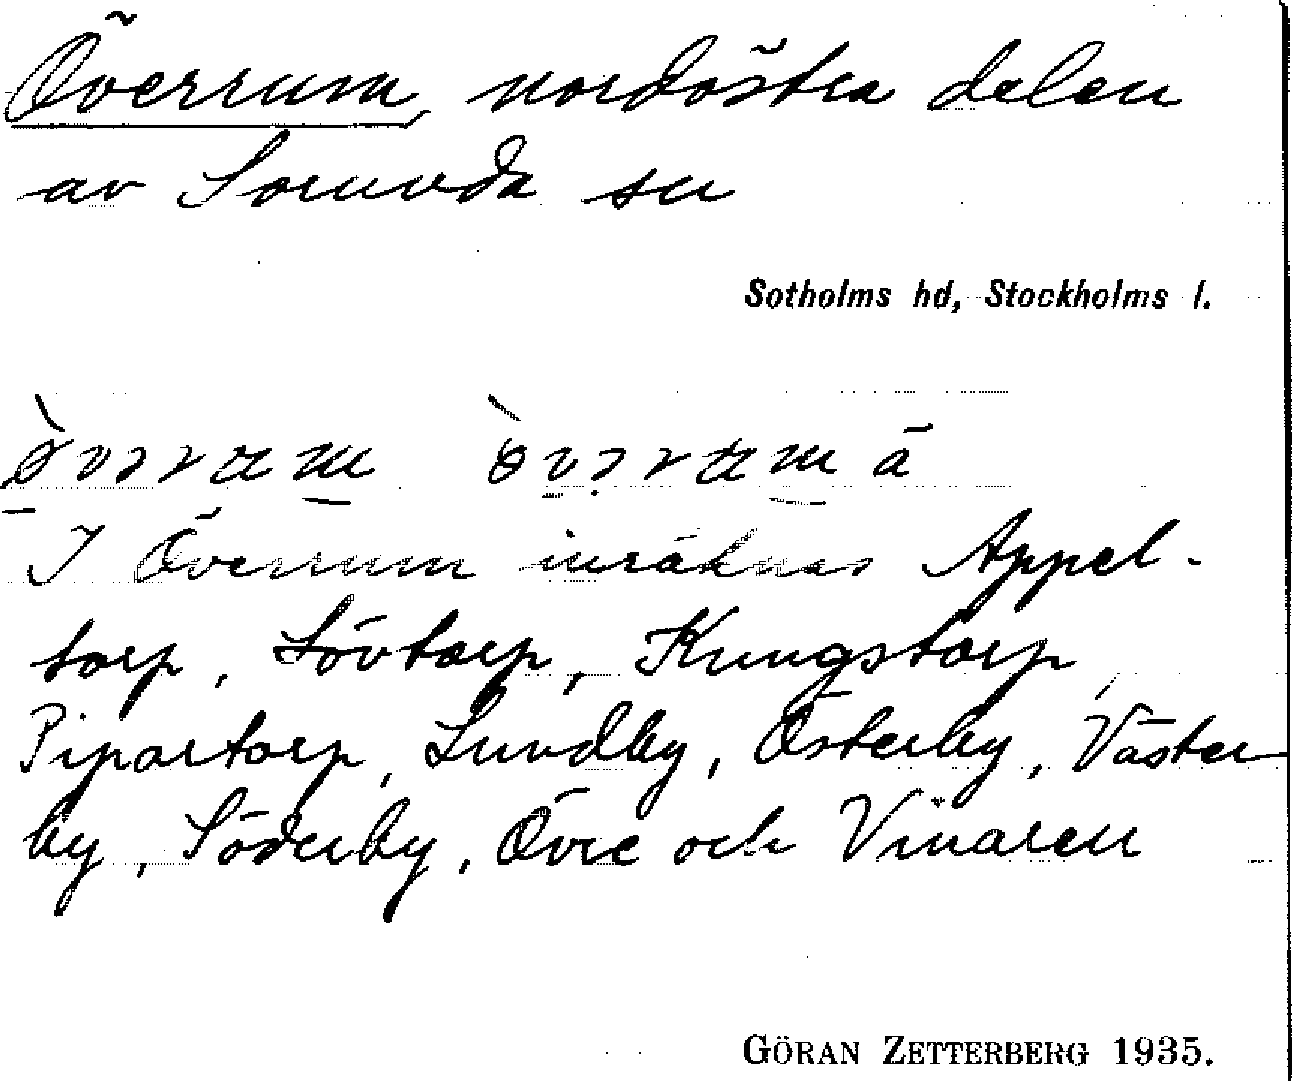 Överrum, nordöstra delen
av Sorunda sn
Sotholms hd, Stockholms l.
I Överrum inräknas Appel-
torp, Lövtorp, Kungstorp,
Pipartorp, Lundby, Österby, Väster
by, Söderby, Övre och
GÖRAN ZETTERBERG 1935.